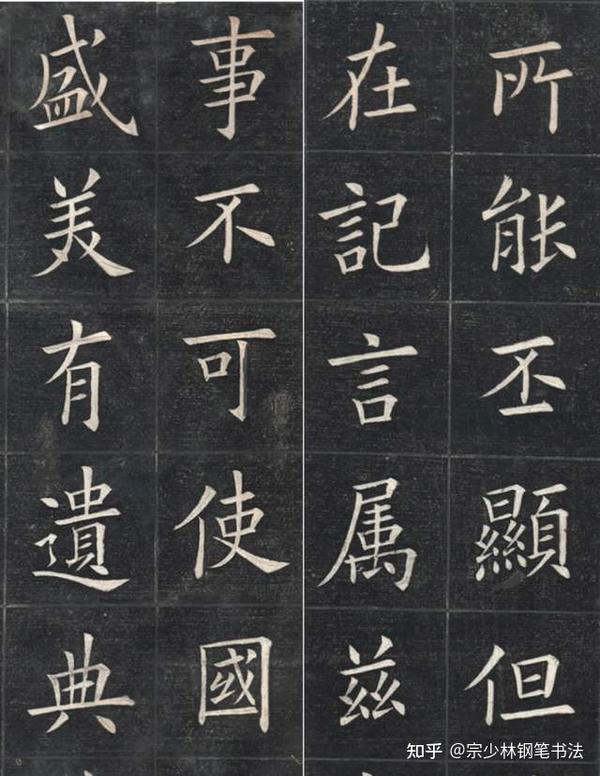 所能丕顯但
在記言属兹
事不可使國
盛美有遺典
知乎 @宗少林钢笔书法